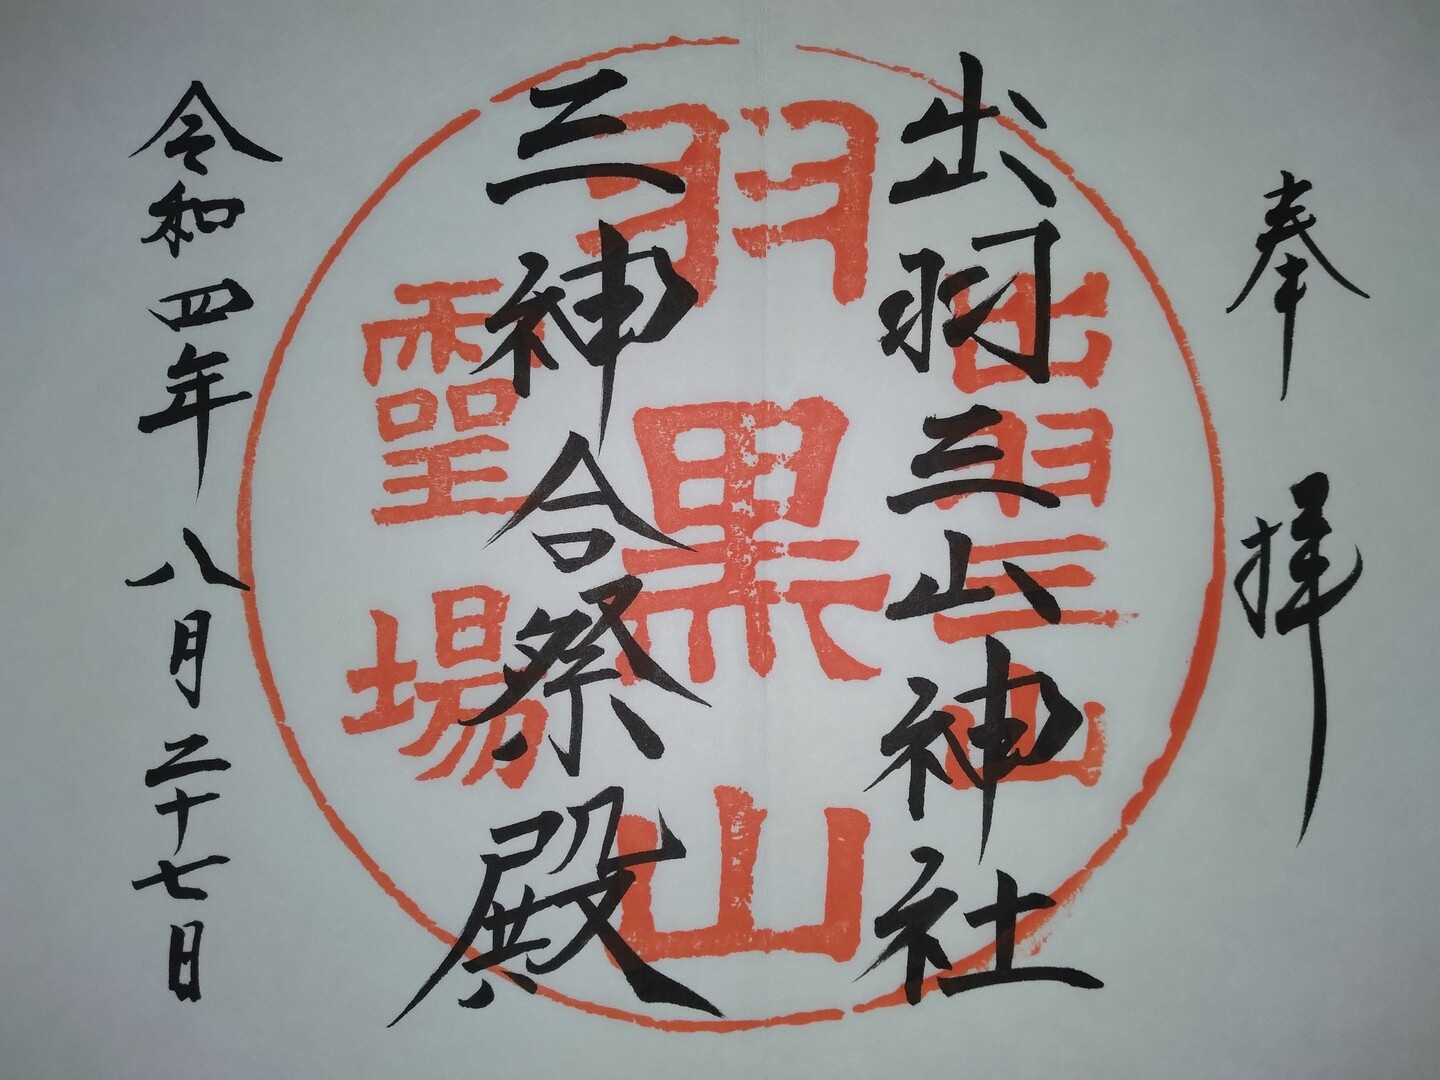 奉拝
出羽三山神社
三神合祭殿
令和四年八月二十七日
出羽三山
羽黒山
霊場